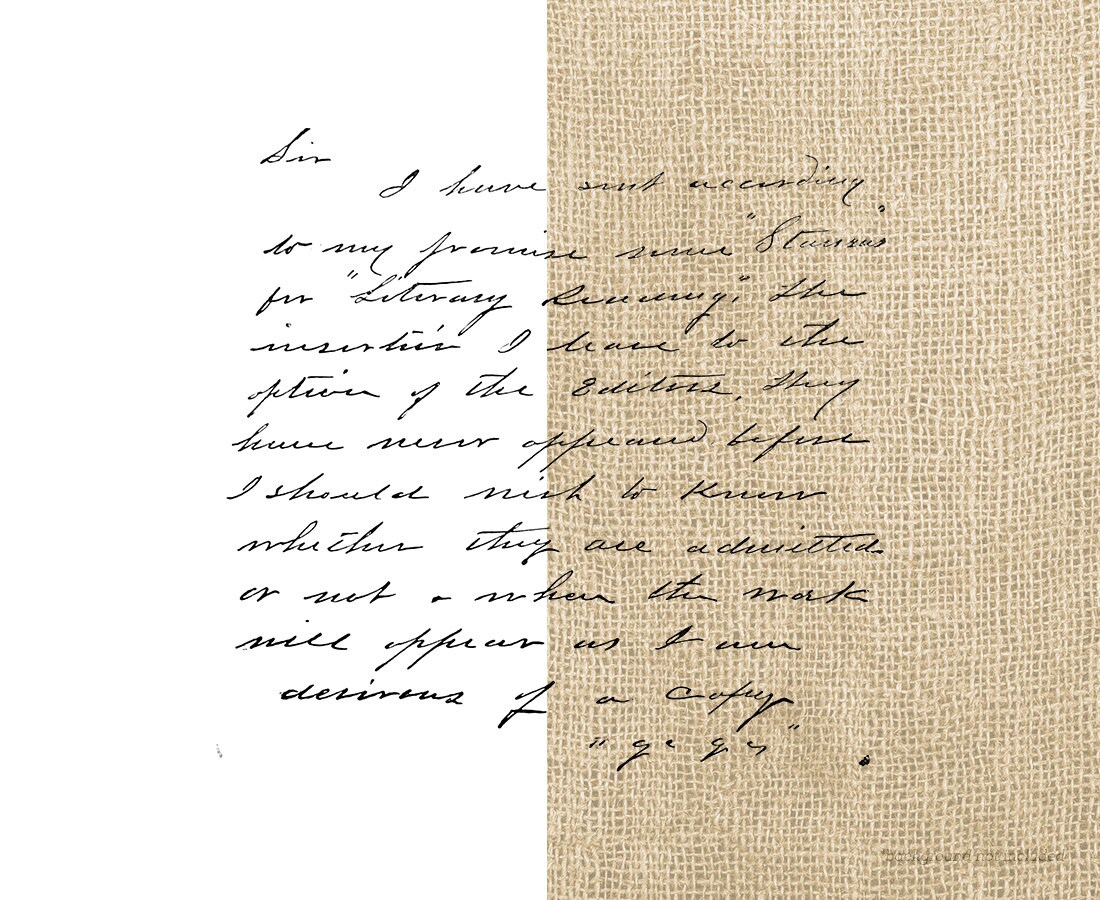 Sir
I have sent according
to my promise some "Stanzas"
for "Literary Rummy". The
insertion I leave to the
option of the Editors, they
have never appeared before
I should wish to know
whether they are admitted
or not & when the work
will appear as I am
desirous of a Copy
*background not included